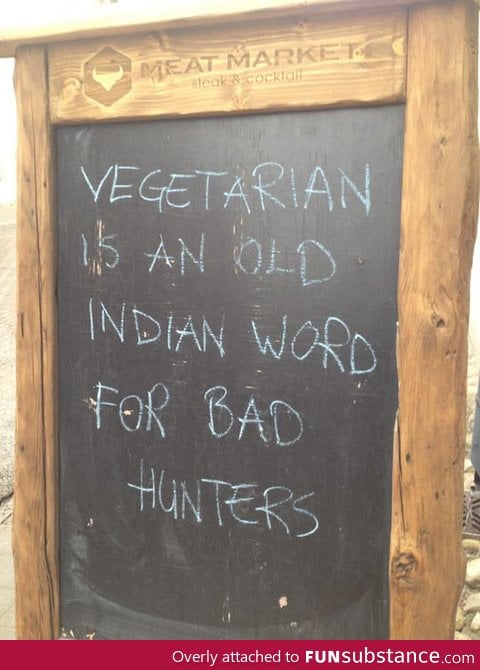 MEAT MARKET
steak & cocktail
VEGETARIAN
IS AN OLD
INDIAN WORD
FOR BAD
HUNTERS
Overly attached to FUNsubstance.com